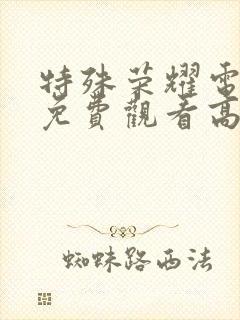 特殊荣耀電
免費觀看高
蜘蛛路西法